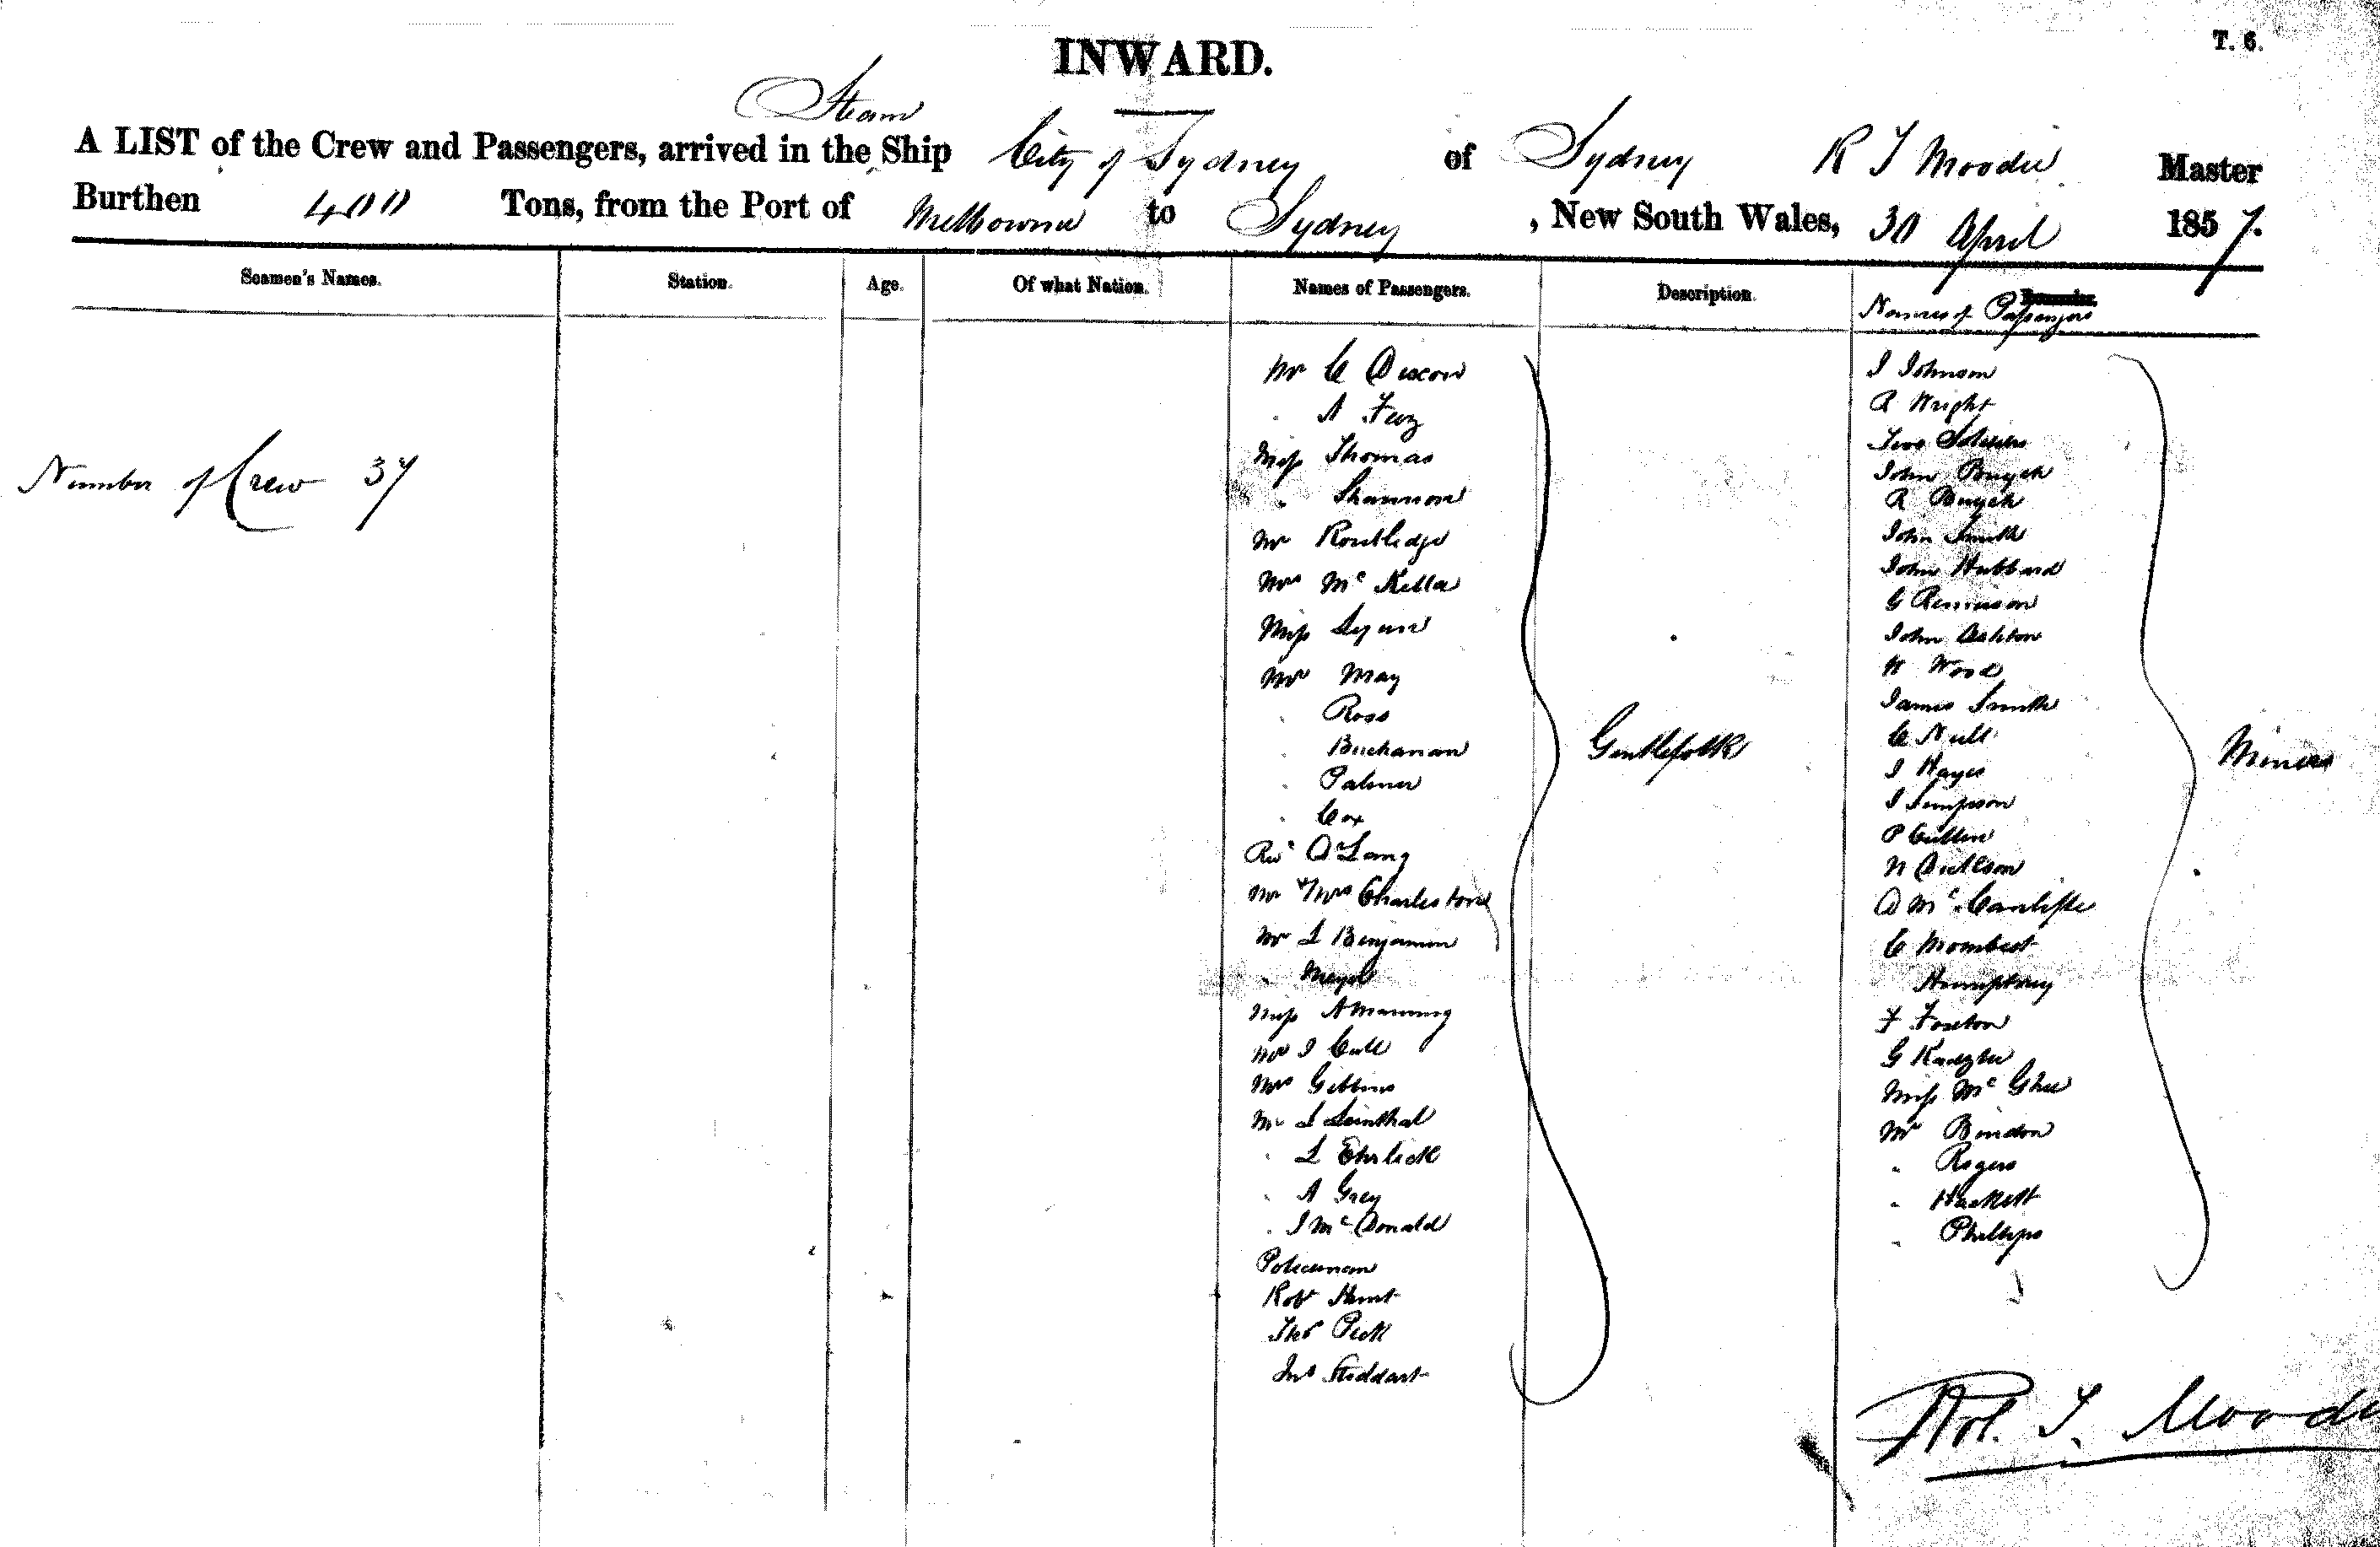 INWARD.
T. 6.
Steam
A LIST of the Crew and Passengers, arrived in the Ship City of Sydney of Sydney R T Moodie Master
Burthen 400 Tons, from the Port of Melbourne to Sydney , New South Wales, 30 April 1857.
Seamen's Names. Station. Age. Of what Nation. Names of Passengers. Description. Names of Passengers
Number of Crew 37
Mr C Dixon
" A
Miss Thomas
" Shannon
Mr Routledge
Mrs McKella
Miss
Mr May
" Ross
" Buchanan
" Palmer
" Cox
Revd Dr Lang
Mr & Mrs Charlestone
Mr L Benjamin
"
Miss A Manning
Mr J Cull
Mrs Gibbins
Mr L
" L Ehrlick
" A Grey
" J McDonald
Policeman
Robt Hunt
Thos Peck
Jno Stoddart
Gentlefolks
J Johnson
R Wright
Two
John
R
John Smith
John Hubbard
G
John Ashton
W Wood
James Smith
C Null
J Hayes
J Simpson
P Cullen
N
D Mc
C
Humphrey
F Foxton
G
Miss McGhee
Mr Bindon
" Rogers
" Hackett
" Phillips
Miners
Rob. T. Moodie